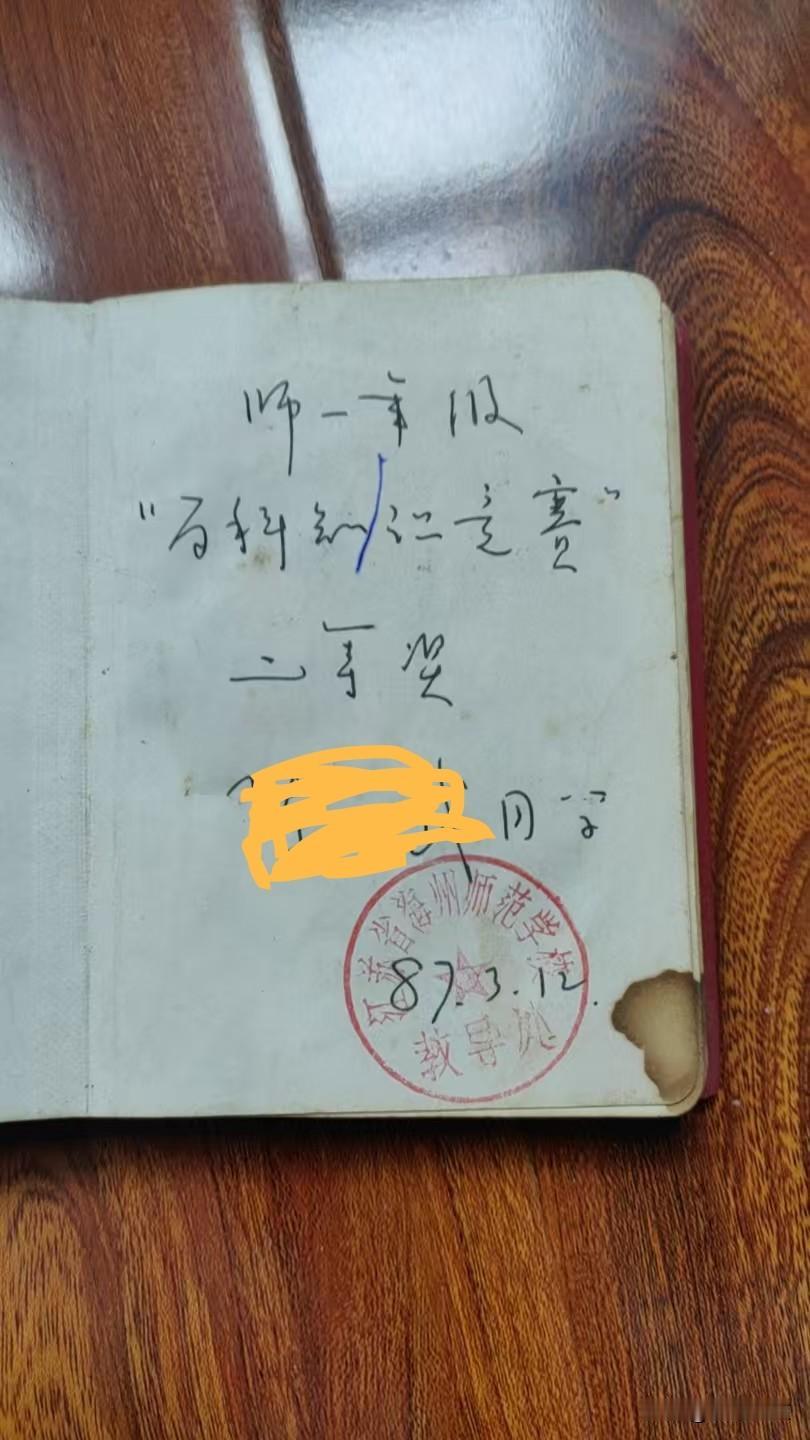 师一年级
“百科知识竞赛”
二等奖
同学
江苏省海州师范学校
87.3.12.
教导处